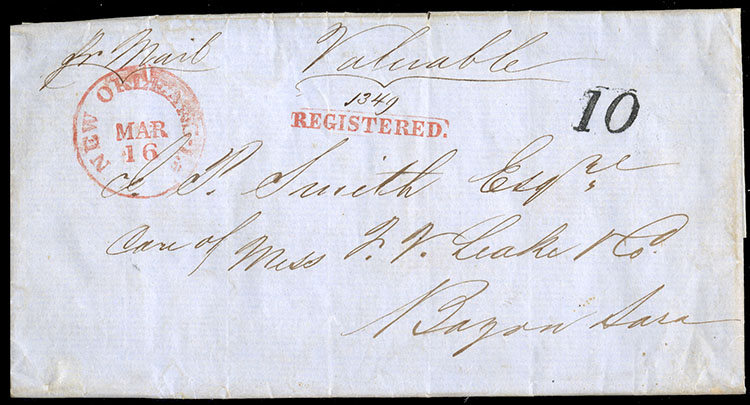 Pr Mail Valuable
1349
REGISTERED.
10
NEW ORLEANS
MAR
16
P. Smith Esqre
Care of Mess F. V. Leake & Co.
Bayou Sara